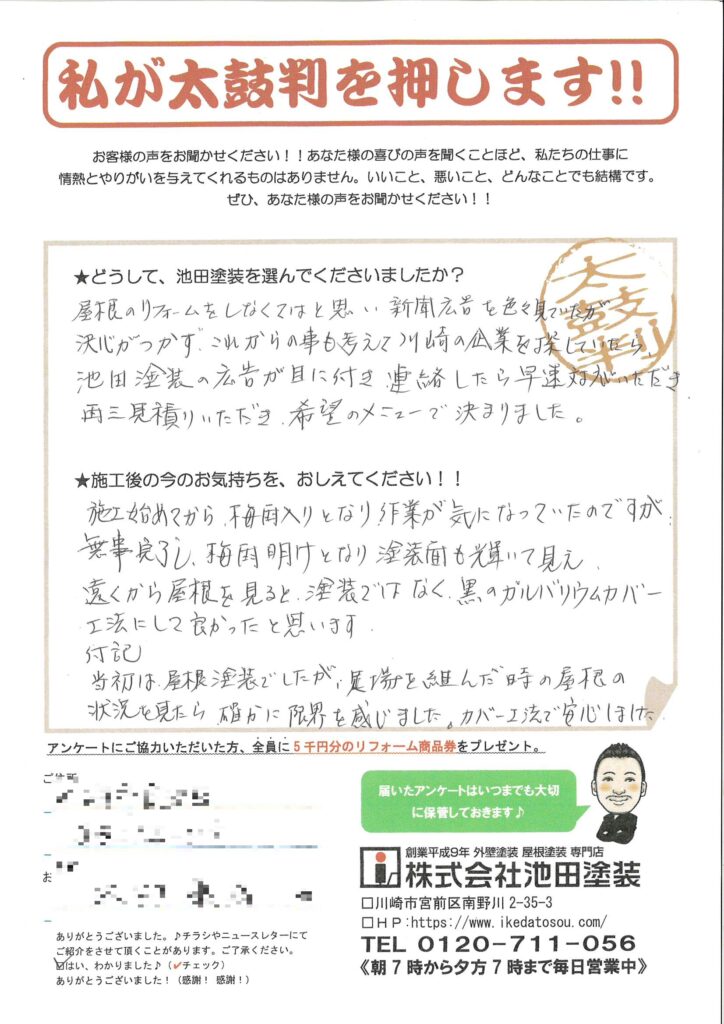 私が太鼓判を押します!!
お客様の声をお聞かせください！！あなた様の喜びの声を聞くことほど、私たちの仕事に
情熱とやりがいを与えてくれるものはありません。いいこと、悪いこと、どんなことでも結構です。
ぜひ、あなた様の声をお聞かせください！！
太鼓判
★どうして、池田塗装を選んでくださいましたか？
屋根のリフォームをしなくてはと思い新聞広告を色々見ていたが
決心がつかず、これからの事も考えて川崎の企業を探していたら、
池田塗装の広告が目に付き連絡したら早速対応いただき
再三見積りいただき、希望のメニューで決まりました。
★施工後の今のお気持ちを、おしえてください！！
施工始めてから、梅雨入りとなり作業が気になっていたのですが、
無事完了し、梅雨明けとなり塗装面も輝いて見え、
遠くから屋根を見ると、塗装ではなく、黒のガルバリウムカバー
工法にして良かったと思います.
付記
当初は、屋根塗装でしたが、足場を組んだ時の屋根の
状況を見たら確かに限界を感じました。カバー工法で安心しました.
アンケートにご協力いただいた方、全員に５千円分のリフォーム商品券をプレゼント。
ご住所
お
届いたアンケートはいつまでも大切
に保管しておきます♪
創業平成9年 外壁塗装 屋根塗装 専門店
株式会社池田塗装
□川崎市宮前区南野川 2-35-3
□ＨＰ:https://www.ikedatosou.com/
TEL 0120-711-056
《朝７時から夕方７時まで毎日営業中》
ありがとうございました。♪チラシやニュースレターにて
ご紹介をさせて頂くことがあります。ご了承ください。
☑はい、わかりました♪（✔チェック）
ありがとうございます！（感謝！ 感謝！）